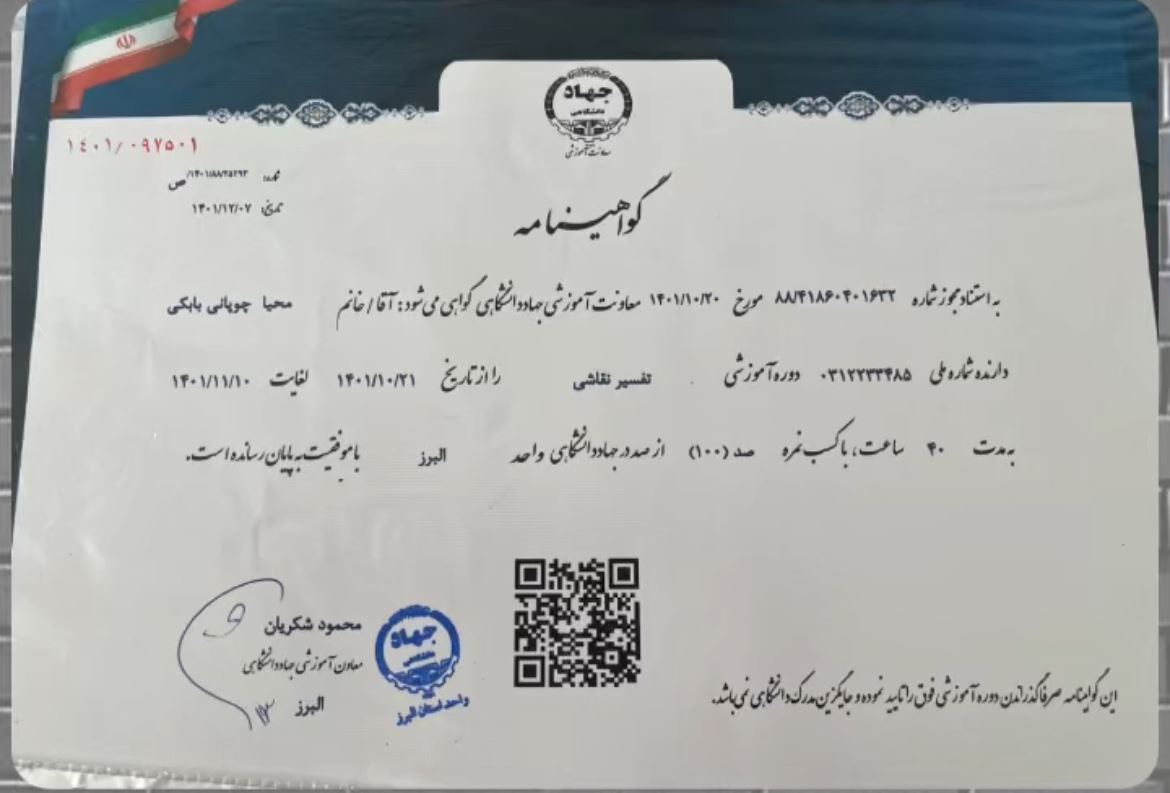 جهاد
دانشگاهی
معاونت آموزشی
۱٤۰۱/۰۹۷۵۰۱
شماره: ۱۴۰۱/۸۸/۲۵۲۹۳/ص
تاریخ: ۱۴۰۱/۱۲/۰۷
گواهینامه
به استناد مجوز شماره ۸۸/۴۱۸۶۰۴۰۱۶۳۲ مورخ ۱۴۰۱/۱۰/۲۰ معاونت آموزشی جهاددانشگاهی گواهی می‌شود: آقا/خانم محیا چوپانی بابکی
دارنده شماره ملی ۰۳۱۲۲۳۳۴۸۵ دوره آموزشی تفسیر نقاشی را از تاریخ ۱۴۰۱/۱۰/۲۱ لغایت ۱۴۰۱/۱۱/۱۰
به مدت ۴۰ ساعت، با کسب نمره صد (۱۰۰) از صد در جهاددانشگاهی واحد البرز با موفقیت به پایان رسانده است.
محمود شکریان
معاون آموزشی جهاددانشگاهی
البرز
جهاد
دانشگاهی
واحد استان البرز
این گواهینامه صرفا گذراندن دوره آموزشی فوق را تایید نموده و جایگزین مدرک دانشگاهی نمی‌باشد.